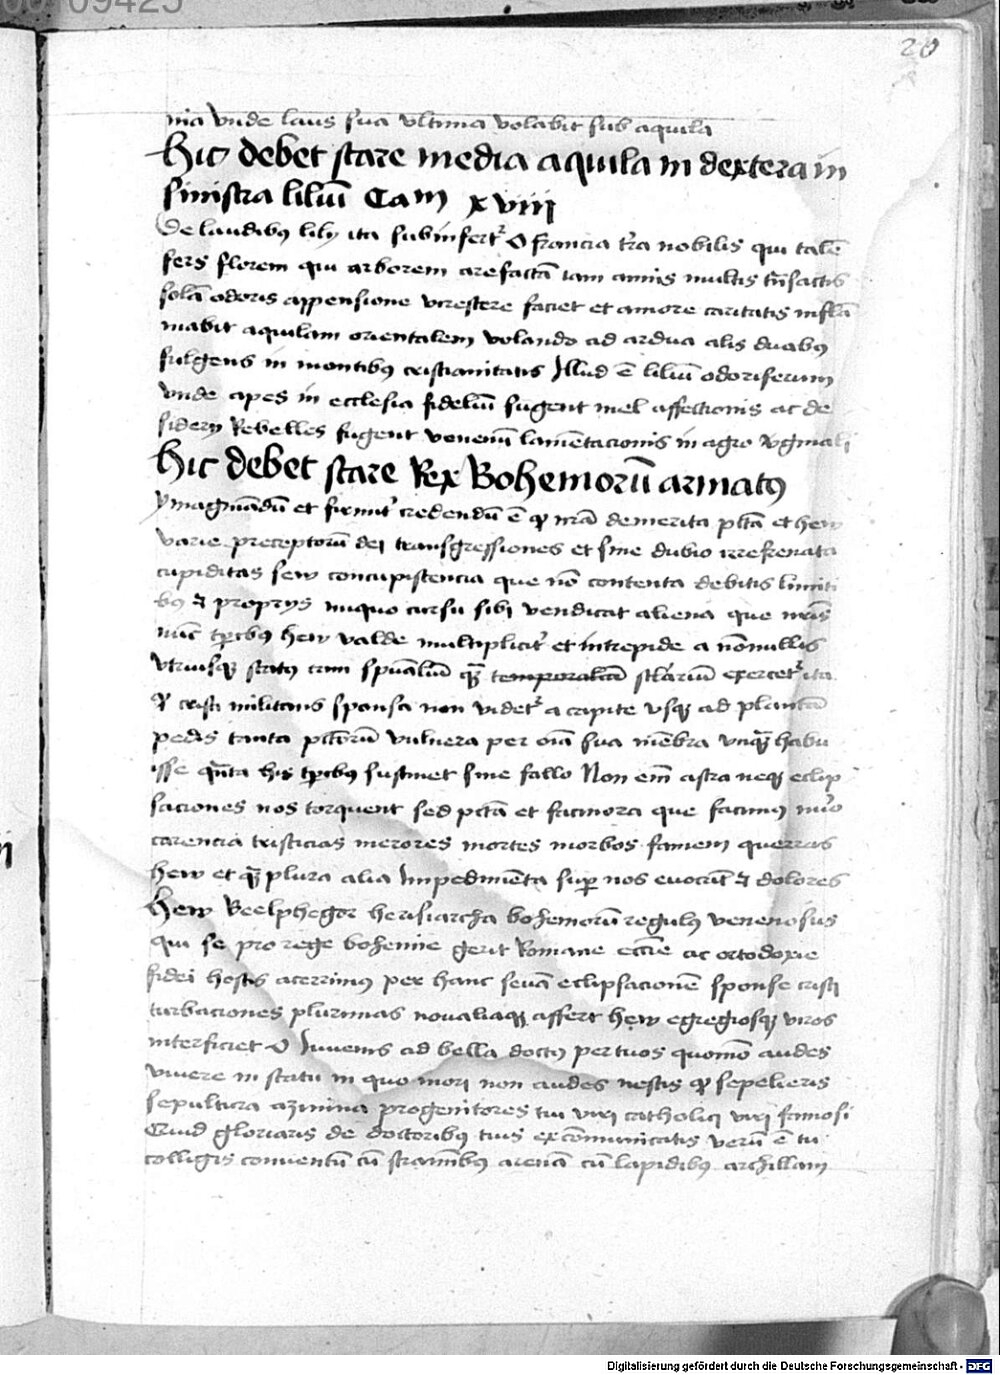 00109425
20
nia vnde laus sua vltima volabit sub aquila
Hic debet stare media aquila in dextera in
sinistra liliū Cam xviii
De laudibꝰ lily ita subinfert᷑ O francia tr̄a nobilis qui talē
fers florem qui arborem arefactā iam annis multis tn̄sactis
solā odoris appensione vcrescere faciet et amore caritatis inflā
mabit aquilam orientalem volando ad ardua alis duabꝰ
fulgens in montibꝰ cristianitatis Illud ē liliū odoriferum
vnde apes in ecclesia fideliū sugent mel affectionis ac de
sidery Rebelles sugent venenū lamētacionis in agro
Hic debet stare Rex Bohemorū armatꝰ
Ymaginādū et firmit᷑ credendū ē ꝙ nr̄ā demerita pctā et hew
varie preceptorū dei transgressiones et sine dubio irrefrenata
cupiditas sew concupiscencia que nō contenta debitis limiti
bꝰ ⁊ proprys iniquo cursu sibi vendicat aliena que nr̄is
nūc tp̄cbꝰ hew valde multiplicit᷑ et intrepide a nōnullis
vtriusqꝫ statꝰ tam spūaliū qꝫ̄ temporaliū sclāriū exercet᷑ ita
ꝙ cristi militans sponsa non videt᷑ a capite vsqꝫ ad plantā
pedis tanta pctōrū vulnera per oīa sua mēbra vnqꝫ̄ habu
isse qn̄ta his tp̄cbꝰ sustinet sine fallo Non em̄ astra neqꝫ eclip
saciones nos torquent sed pctā et facinora que facimꝰ
carencia tristicias merores mortes morbos famem guerras
hew et qꝫ̄ plura alia Impedimēta sup̄ nos euocāt ⁊ dolores
Hew Beelphegor heresiarcha bohemorū regulꝰ venenosus
qui se pro rege bohemie gerit Romane eccīe ac ortodoxie
fidei hostis acerrimꝰ per hanc seuā eclipsacionē sponse cristi
turbaciones plurimas noualiaqꝫ affert hew egregiosqꝫ viros
interficiet O Iuuenis ad bella doctꝰ per tuos quomō audes
viuere in statu in quo mori non audes nescis ꝙ sepelieris
sepultura azinina progenitores tui viri catholici viri famosi
Quid gloriaris de doctoribꝰ tuis excōmunicatis verū ē tu
colligis conuentū cū straminibꝰ arenā cū lapidibꝰ archillam
Digitalisierung gefördert durch die Deutsche Forschungsgemeinschaft - DFG